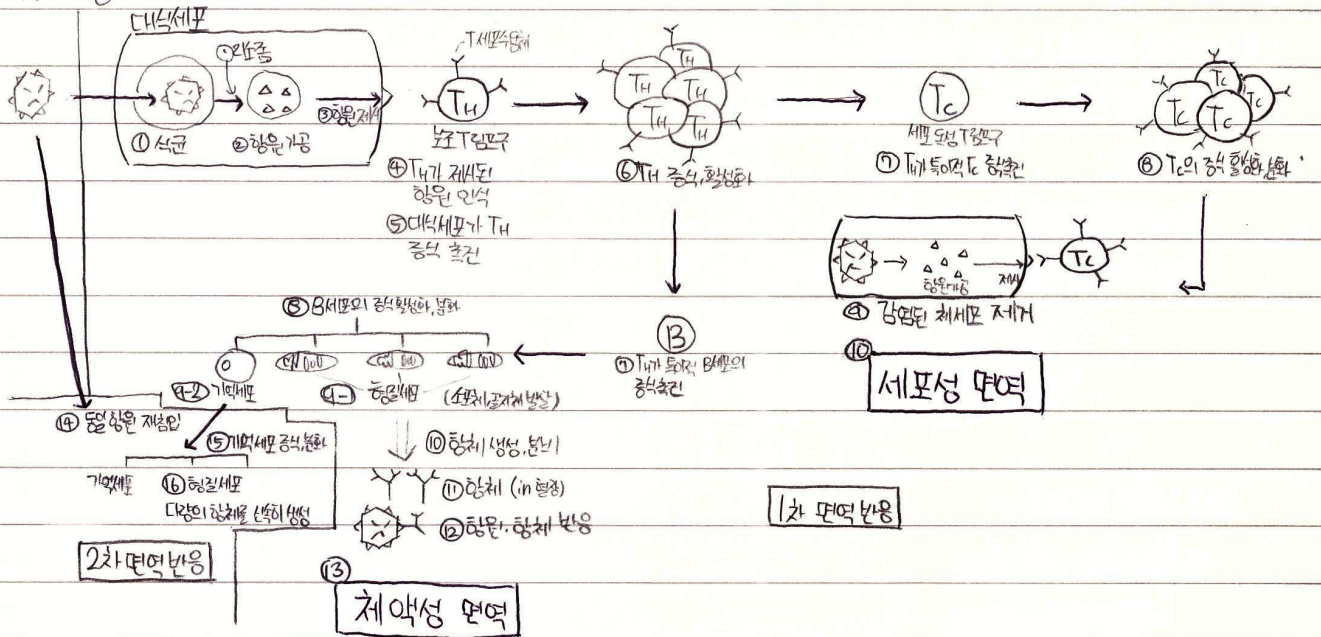 대식세포
리소좀
① 식균
② 항원가공
③ 항원제시
T세포수용체
TH
보조 T림프구
④ TH가 제시된
항원 인식
⑤ 대식세포가 TH
증식 촉진
TH
TH
TH
TH
TH
⑥ TH 증식, 활성화
TC
세포독성 T림프구
⑦ TH가 특이적 TC 증식촉진
TC
TC
TC
TC
⑧ TC의 증식 활성화, 분화
항원가공
제시
TC
⑨ 감염된 체세포 제거
⑩
세포성 면역
B
⑦ TH가 특이적 B세포의
증식촉진
⑧ B세포의 증식 활성화, 분화
9-2 기억세포
9-1 형질세포
(소포체, 골지체 발달)
⑩ 항체 생성, 분비
⑪ 항체 (in 혈장)
⑫ 항원·항체 반응
⑬
체액성 면역
1차 면역반응
⑭ 동일 항원 재침입
⑮ 기억세포 증식, 분화
기억세포
⑯ 형질세포
다량의 항체를 신속히 생성
2차 면역반응